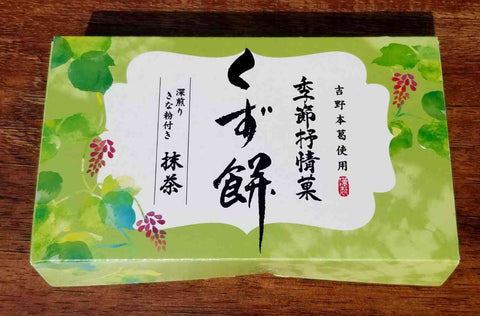 吉野本葛使用
季節抒情菓
くず餅
深煎り
きな粉付き
抹茶